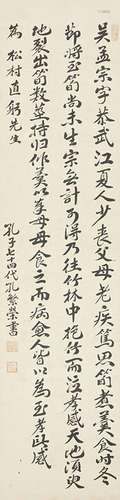 吴孟宗字恭武江夏人少丧父母老疾篤思笋煮羹食时冬
節将至笋尚未生宗無計可得乃往竹林中抱竹而泣孝感天地須臾
地裂出笋数莖持归作羹以奉母母食之而病愈人皆以為至孝所感
為松村直躬先生
孔子七十四代孔繁榮書